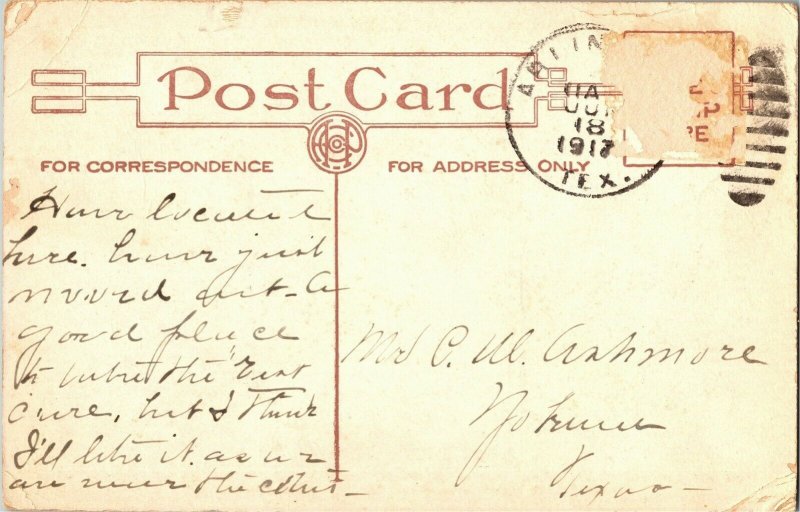 Post Card
FOR CORRESPONDENCE
FOR ADDRESS ONLY
ARLIN
11A
18
1917
TEX.
Have located
here. have just
moved out. A
good place
to take the "rest
cure, but I think
I'll like it. as we
are near the
Mr C. W. Ashmore
Yokum
Texas